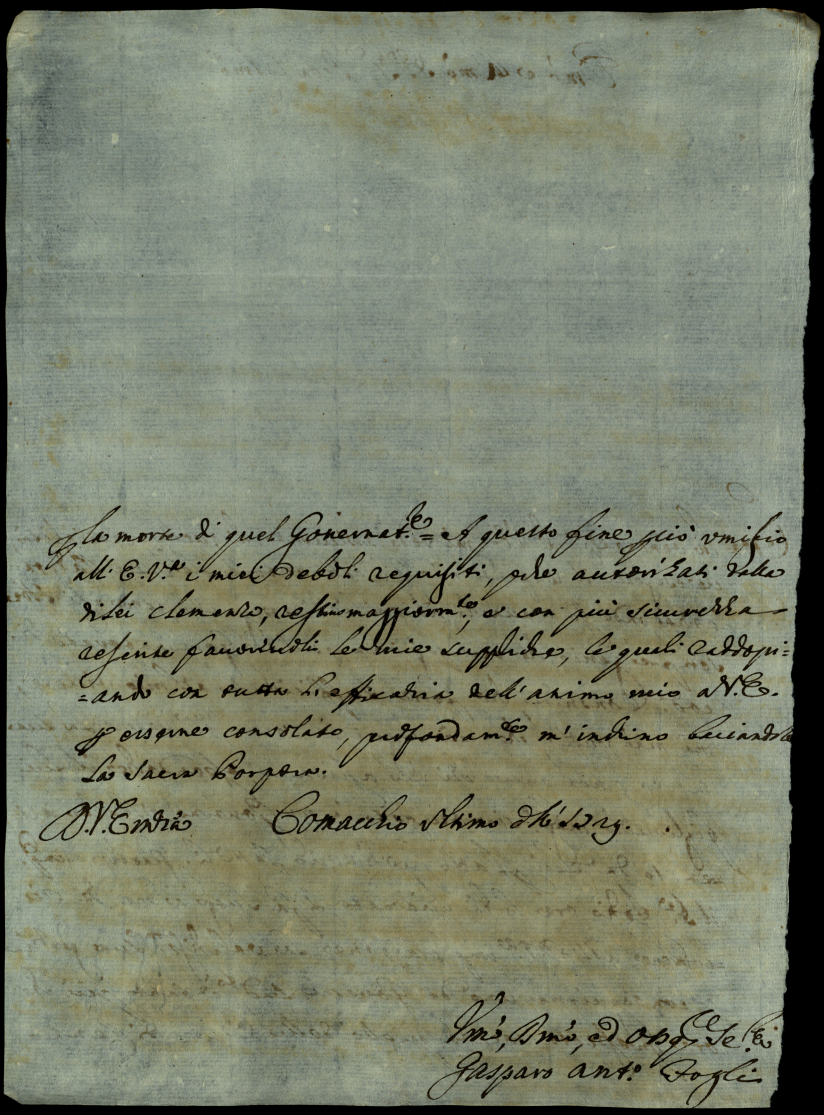 la morte di quel Governat.re = A questo fine più umilio
all' E. V.ra i miei deboli requisiti, autorizati dalla
di lei clemenza, restino maggiorm.te, e con più sicurezza
le mie suppliche, le quali raddopi=
=ando con tutta l'efficacia dell'animo mio a V. E.
p esserne consolato, profondam.te m'inchino baciandole
la Sacra Porpora.
D. V. Em̃za Comacchio ultimo
Umõ, Dmõ, ed Obg.
Gasparo Ant.o Fogli